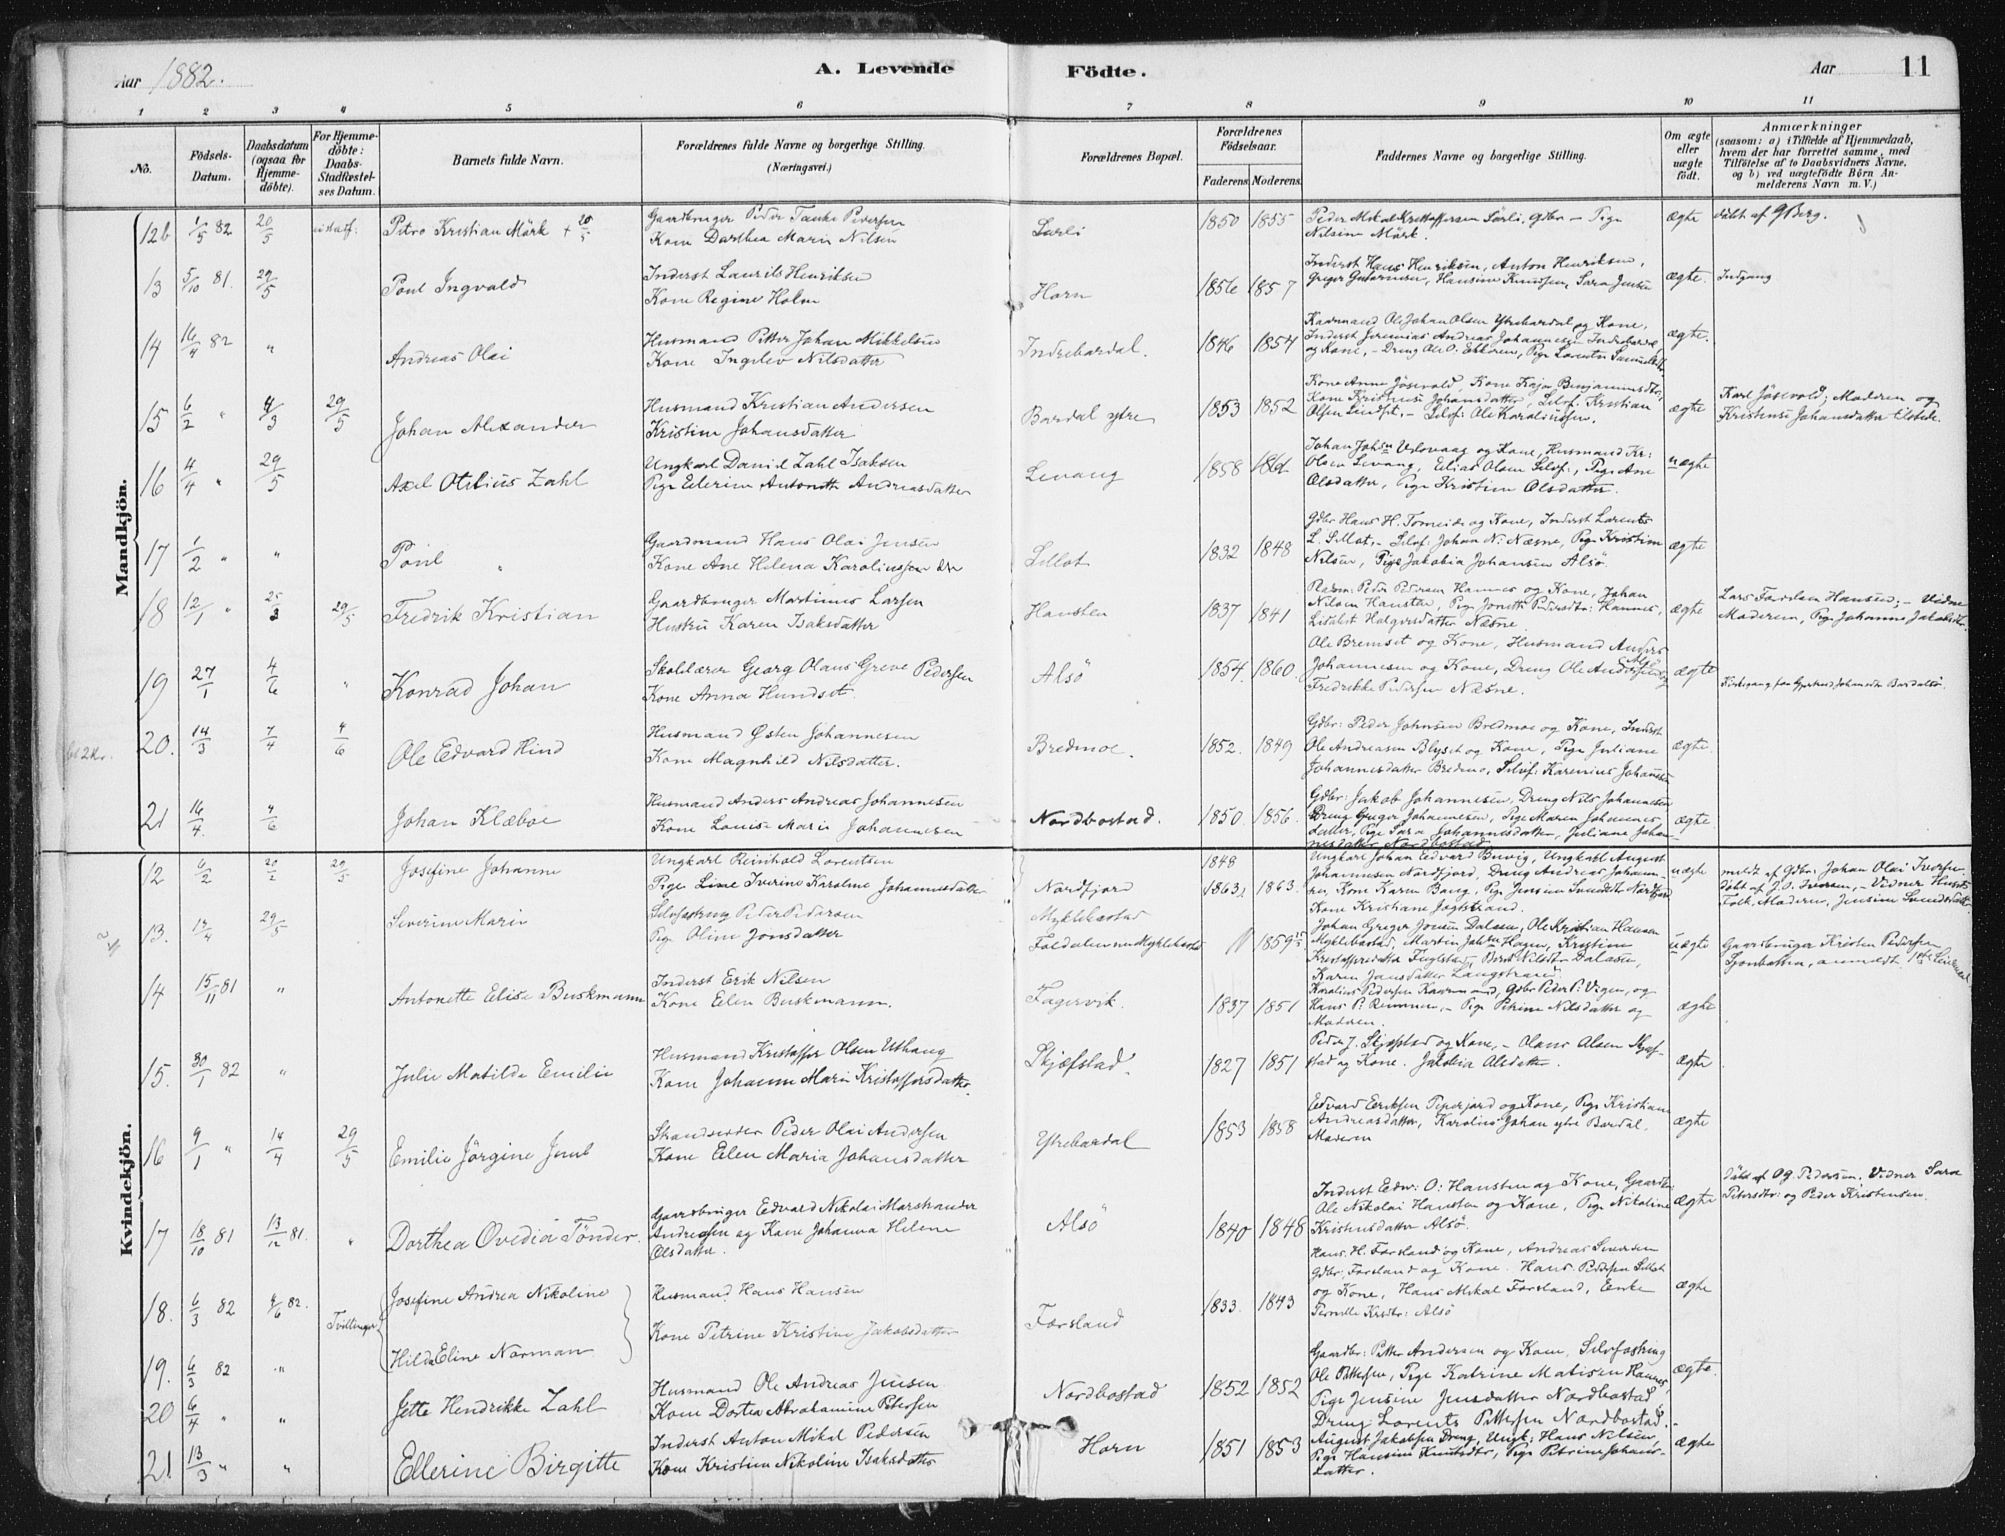 Aar 1882.
A. Levende Födte.
Aar 11
1 2 3 4 5 6 7 8 9 10 11
No.
Födsels-Datum.
Daabsdatum (ogsaa for Hjemme-döbte).
For Hjemme-döbte: Daabs-Stadfæstel-ses Datum.
Barnets fulde Navn.
Forældrenes fulde Navne og borgerlige Stilling.
(Næringsvei.)
Forældrenes Bopæl.
Forældrenes Födselsaar.
Faderens. Moderens.
Faddernes Navne og borgerlige Stilling.
Om ægte eller uægte födt.
Anmærkninger
(saasom: a) i Tilfælde af Hjemmedaab, hvem der har forrettet samme, med Tilföielse af to Daabsvidners Navne, og b) ved uægtefödte Börn An-melderens Navn m. V.)
Mandkjön.
12b 1/5 82 20/5 Petro Kristian Mörk + 20/5
Gaardbruger Peder Tanke Pedersen
Kone Dorthea Marie Nilsen
Sørli 1850 1855
Peder Mikal Kristoffersen Sörli, Gdbr — Pige
Nilsine Mörk.
ægte döbt af G Berg.
13 5/10 81. 29/5 Poul Ingvald
Inderst Laurits Henriksen
Kone Regine Holm
Horn 1856 1857
Inderst Hans Henriksen, Anton Henriksen,
Greger Gunnersen, Hansine Knudsen, Sara Jensen
ægte. Indgang
14 16/4 82 " Andreas Olai
Husmand Petter Johan Mikkelsen
Kone Ingelev Nilsdatter
Indrebardal. 1846 1854
Kaarmand Ole Johan Olsen Ytrebardal og Kone,
Inderst Jeremias Andreas Johannesen Indrebardal
og Kone, - Dreng Ole O. Ekkoren, Pige Lorentse Samuelsdtr.
ægte.
15 6/2 " 4/3 29/5 Johan Alexander
Husmand Kristian Andersen
Kristine Johansdatter
Bardal ytre 1853 1852
Kone Anne Jösevold, Kone Kaja Benjaminsdtr,
Kone Kristense Johansdatter, Selvf. Kristian
Olsen Lindset, - Selvf: Ole Karoliussen.
ægte
Karl Jösevold; Moderen og
Kristense Johansdatter tilstede.
16 4/4 " 29/5 Axel Otilius Zahl
Ungkarl Daniel Zahl Isaksen
Pige Elerine Antonette Andreasdatter
Levang 1858 1862
Johan Johsn Vedvaag og Kone, Husmand Kr:
Olsen Levang, Elias Olsen Selvf:, Pige Ane
Olsdatter, Pige Kristine Olsdatter.
uægte
17 1/2 " " Poul
Gaardmand Hans Olai Jensen
Kone Ane Helena Karoliussen dtr
Sillot 1832 1848
Gdbr Hans H. Tomeide og Kone, Inderst Lorents
L. Sillot, - Selvf. Johan N: Næsne, Pige Kristine
Nilsen, Pige Jakobia Johansen Alsö.
ægte
18 12/1 " 25/3 29/5 Fredrik Kristian
Gaardbruger Martinus Larsen
Hustru Karen Isaksdatter
Hansten 1837 1841
Pladsm: Peder Pedersen Hamnes og Kone, Johan
Nilsen Hansten, Pige Jonette Pedersdtr: Hamnes,
Lisabet Holgersdatter Næsne.
ægte
Lars Forsten Hansen; - Vidne
Moderen, Pige Johanne Jakobsdtr.
19 27/1 4/6 " Konrad Johan
Skolelærer Georg Olaus Greve Pedersen
Kone Anna Hundset.
Alsö 1854. 1860.
Ole Bremset og Kone, Husmand Anders
Johannesen og Kone, Dreng Ole Andersen Alsö
Fredrikke Pedersen Næsne.
ægte
20. 14/3 7/4 4/6 Ole Edvard Hind
Husmand Østen Johannesen
Kone Magnhild Nilsdatter.
Bredmoe. 1852. 1849
Gdbr: Peder Johnsen Bredmoe og Kone, Inderst
Ole Andreasen Blyset og Kone, Pige Juliane
Johannesdatter Bredmo, Selvf: Karenius Johansen
ægte.
21 16/4. 4/6 Johan Klæboe
Husmand Anders Andreas Johannesen
Kone Louise Marie Johannesen
Nordbostad. 1850. 1856.
Gdbr: Jakob Johannesen, Dreng Nils Johannesen
Dreng Greger Johannesen, Pige Maren Johannes-
datter, Pige Sara Johannesdatter, Juliane Johan-
nesdatter Nordbostad
ægte.
Kvindekjön.
12 6/2 20/2 29/5 Josefine Johanne
Ungkarl Reinhold Lorentsen
Pige Line Iverine Karoline Johannesdatter
Nordfjord 1848 1863, 1863.
Ungkarl Johan Edvard Buvig, Ungkarl August
Johannesen Nordfjord, Dreng Andreas Johann-
sen, Kone Karen Bang, Pige Jensine Nordfjord
Kone Kristiane Jogtstrand.
uægte
meldt af Gdbr: Johan Olai Iversen
döbt af J. O. Iversen, - Vidner Husets
Folk, Moderen, Jensine Svendsdatter
13. 14/4 29/5 Severine Marie
Selvfostring Peder Pedersen
Pige Oline Jonsdatter
Myklebostad
Foldalen nu Myklebostad 1859
Johan Greger Jonsen Dalosen, Ole Kristian Hansen
Myklebostad, Martin Johsn Hagen, Kristine
Kristoffersdatter Fuglstad, Berit Nilsdtr Dalosen,
Karen Jansdatter Langstrand.
uægte
Gaardbruger Kristen Pedersen
anmeldt. 1ste Leiermaal
14 15/11 81 " Antonette Elise Buskmann
Inderst Erik Nilsen
Kone Elen Buskmann.
Fagervik. 1837 1851
Karolius Pedersen Kaarmand, Gdbr Peder P: Vigen, og
Hans P: Remmen, - Pige Petrine Nilsdatter og
Moderen.
ægte
15. 30/1 82 " Julie Matilde Emilie
Husmand Kristoffer Olsen Uthaug
Kone Johanne Marie Kristoffersdatter.
Skjæfstad. 1827 1851
Peder J. Skjæfstad og Kone, - Olaus Olsen Skjæf-
stad og Kone. Jakobia Olsdatter.
ægte
16 9/1 " 14/4 29/5 Emilie Jörgine Juul
Strandsidder Peder Olai Andersen
Kone Elen Maria Johansdatter
Ytrebardal 1853 1858
Edvard Eriksen Peperjord og Kone, Pige Kristiane
Andreasdatter, Karolius Johan ytre Bardal.
Moderen
ægte
17 18/10 81 13/12 81. " Dorthea Ovedia Tönder.
Gaardbruger Edvard Nikolai Marstrander
Andreasen og Kone Johanna Helene
Olsdatter.
Alsö 1840 1848
Inderst Edv: O: Hansten og Kone, Gaardbr:
Ole Nikolai Hansten og Kone, Pige Nikoline
Kristensdatter Alsö.
ægte
döbt af O G. Pedersen. Vidner Sara
Petersdtr: og Peder Kristensen.
18. 6/3 82 4/6 82. Tvillinger Josefine Andrea Nikoline
Husmand Hans Hansen
Kone Petrine Kristine Jakobsdatter
Forsland 1833. 1843
Hans. H. Forsland og Kone, Andreas Seversen
Gdbr: Forsland og Kone. Hans Pedersen Sillot
og Kone, Hans Mikal Forsland, Enke
Pernille Krsdtr: Alsö
ægte
19. 6/3 82 " Hilda Eline Norman
20 6/4 " " Jette Hendrikke Zahl
Husmand Ole Andreas Jensen
Kone Dortea Abrahamine Petersen
Nordbostad 1852 1852
Gaardbr: Petter Andersen og Kone, Selvfostring
Ole Pettersen, Pige Katrine Matisen Hamnes,
Pige Jensine Jensdatter Nordbostad
Dreng Lorents Pettersen Nordbostad. -
ægte.
21 13/3 " " Ellerine Birgitte
Inderst Anton Mikal Pedersen
Kone Kristien Nikoline Isaksdatter
Horn 1851 1853
August Jakobsen Dreng, Ungk: Hans Nilsen,
Pige Hansine Knudsdtr, Pige Petrine Johans-
datter.
ægte